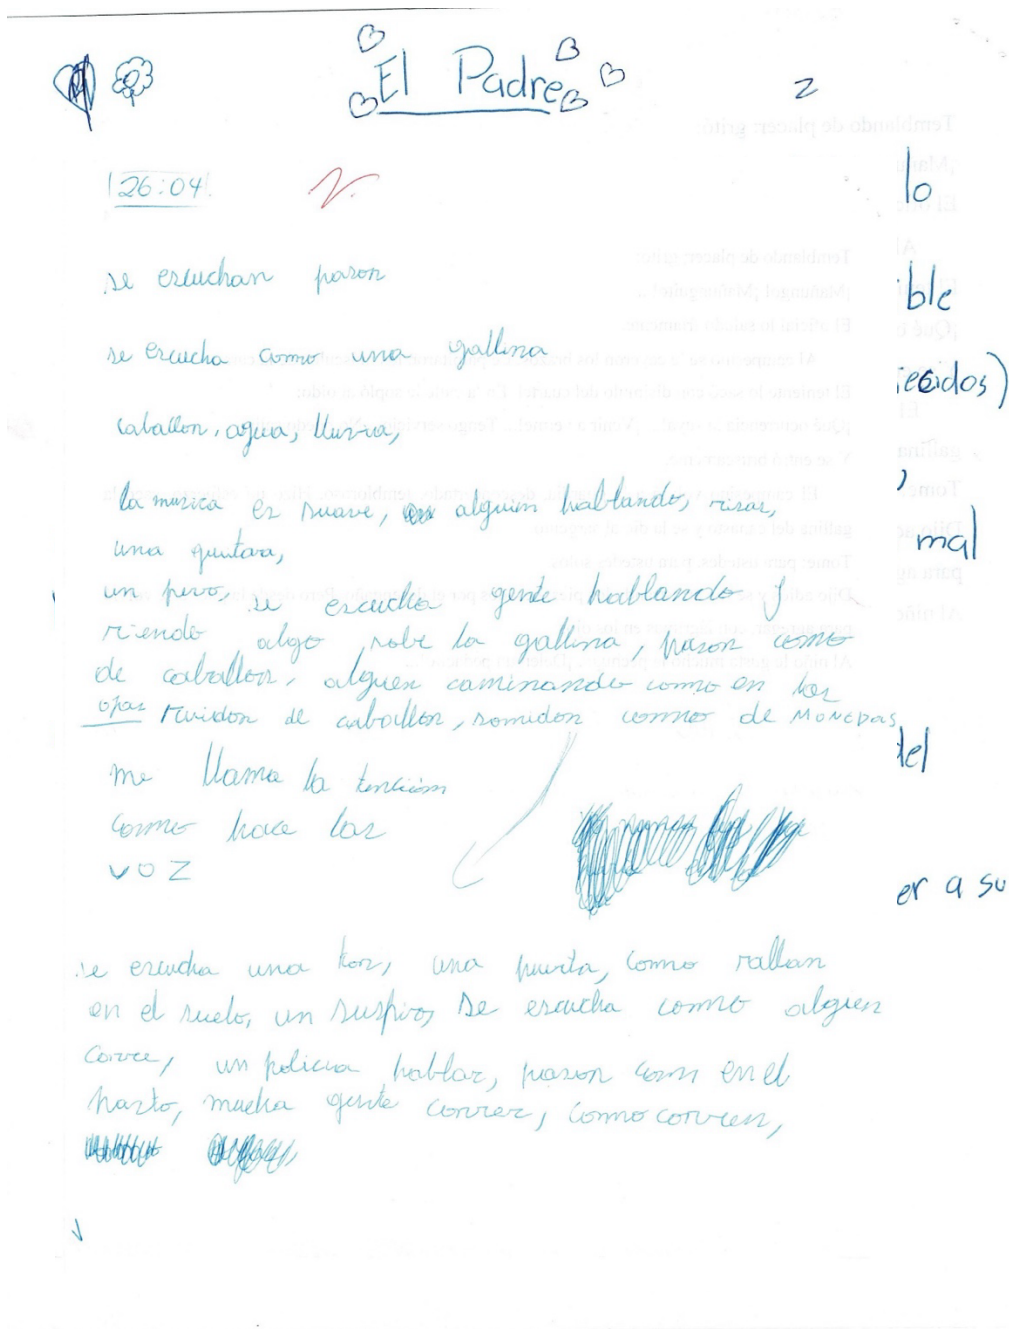 El Padre
2
26:04
lo
se escuchan pasos
ible
se escucha como una gallina
iecidos)
caballos, agua, lluvia,
la musica es suave, alguien hablando, risas,
una guitara,
mal
un perro, se escucha gente hablando y
riendo algo sobe la gallina, pasos como
de caballos, alguien caminando como en las
opas ruidos de caballos, sonidos como de MONEDAS
del
me llama la tención
como hace las
voz
er a su
se escucha una tos, una puerta, como rallan
en el suelo, un suspiro, se escucha como alguien
corre, un policia hablar, pasos com en el
pasto, mucha gente correr, como corren,